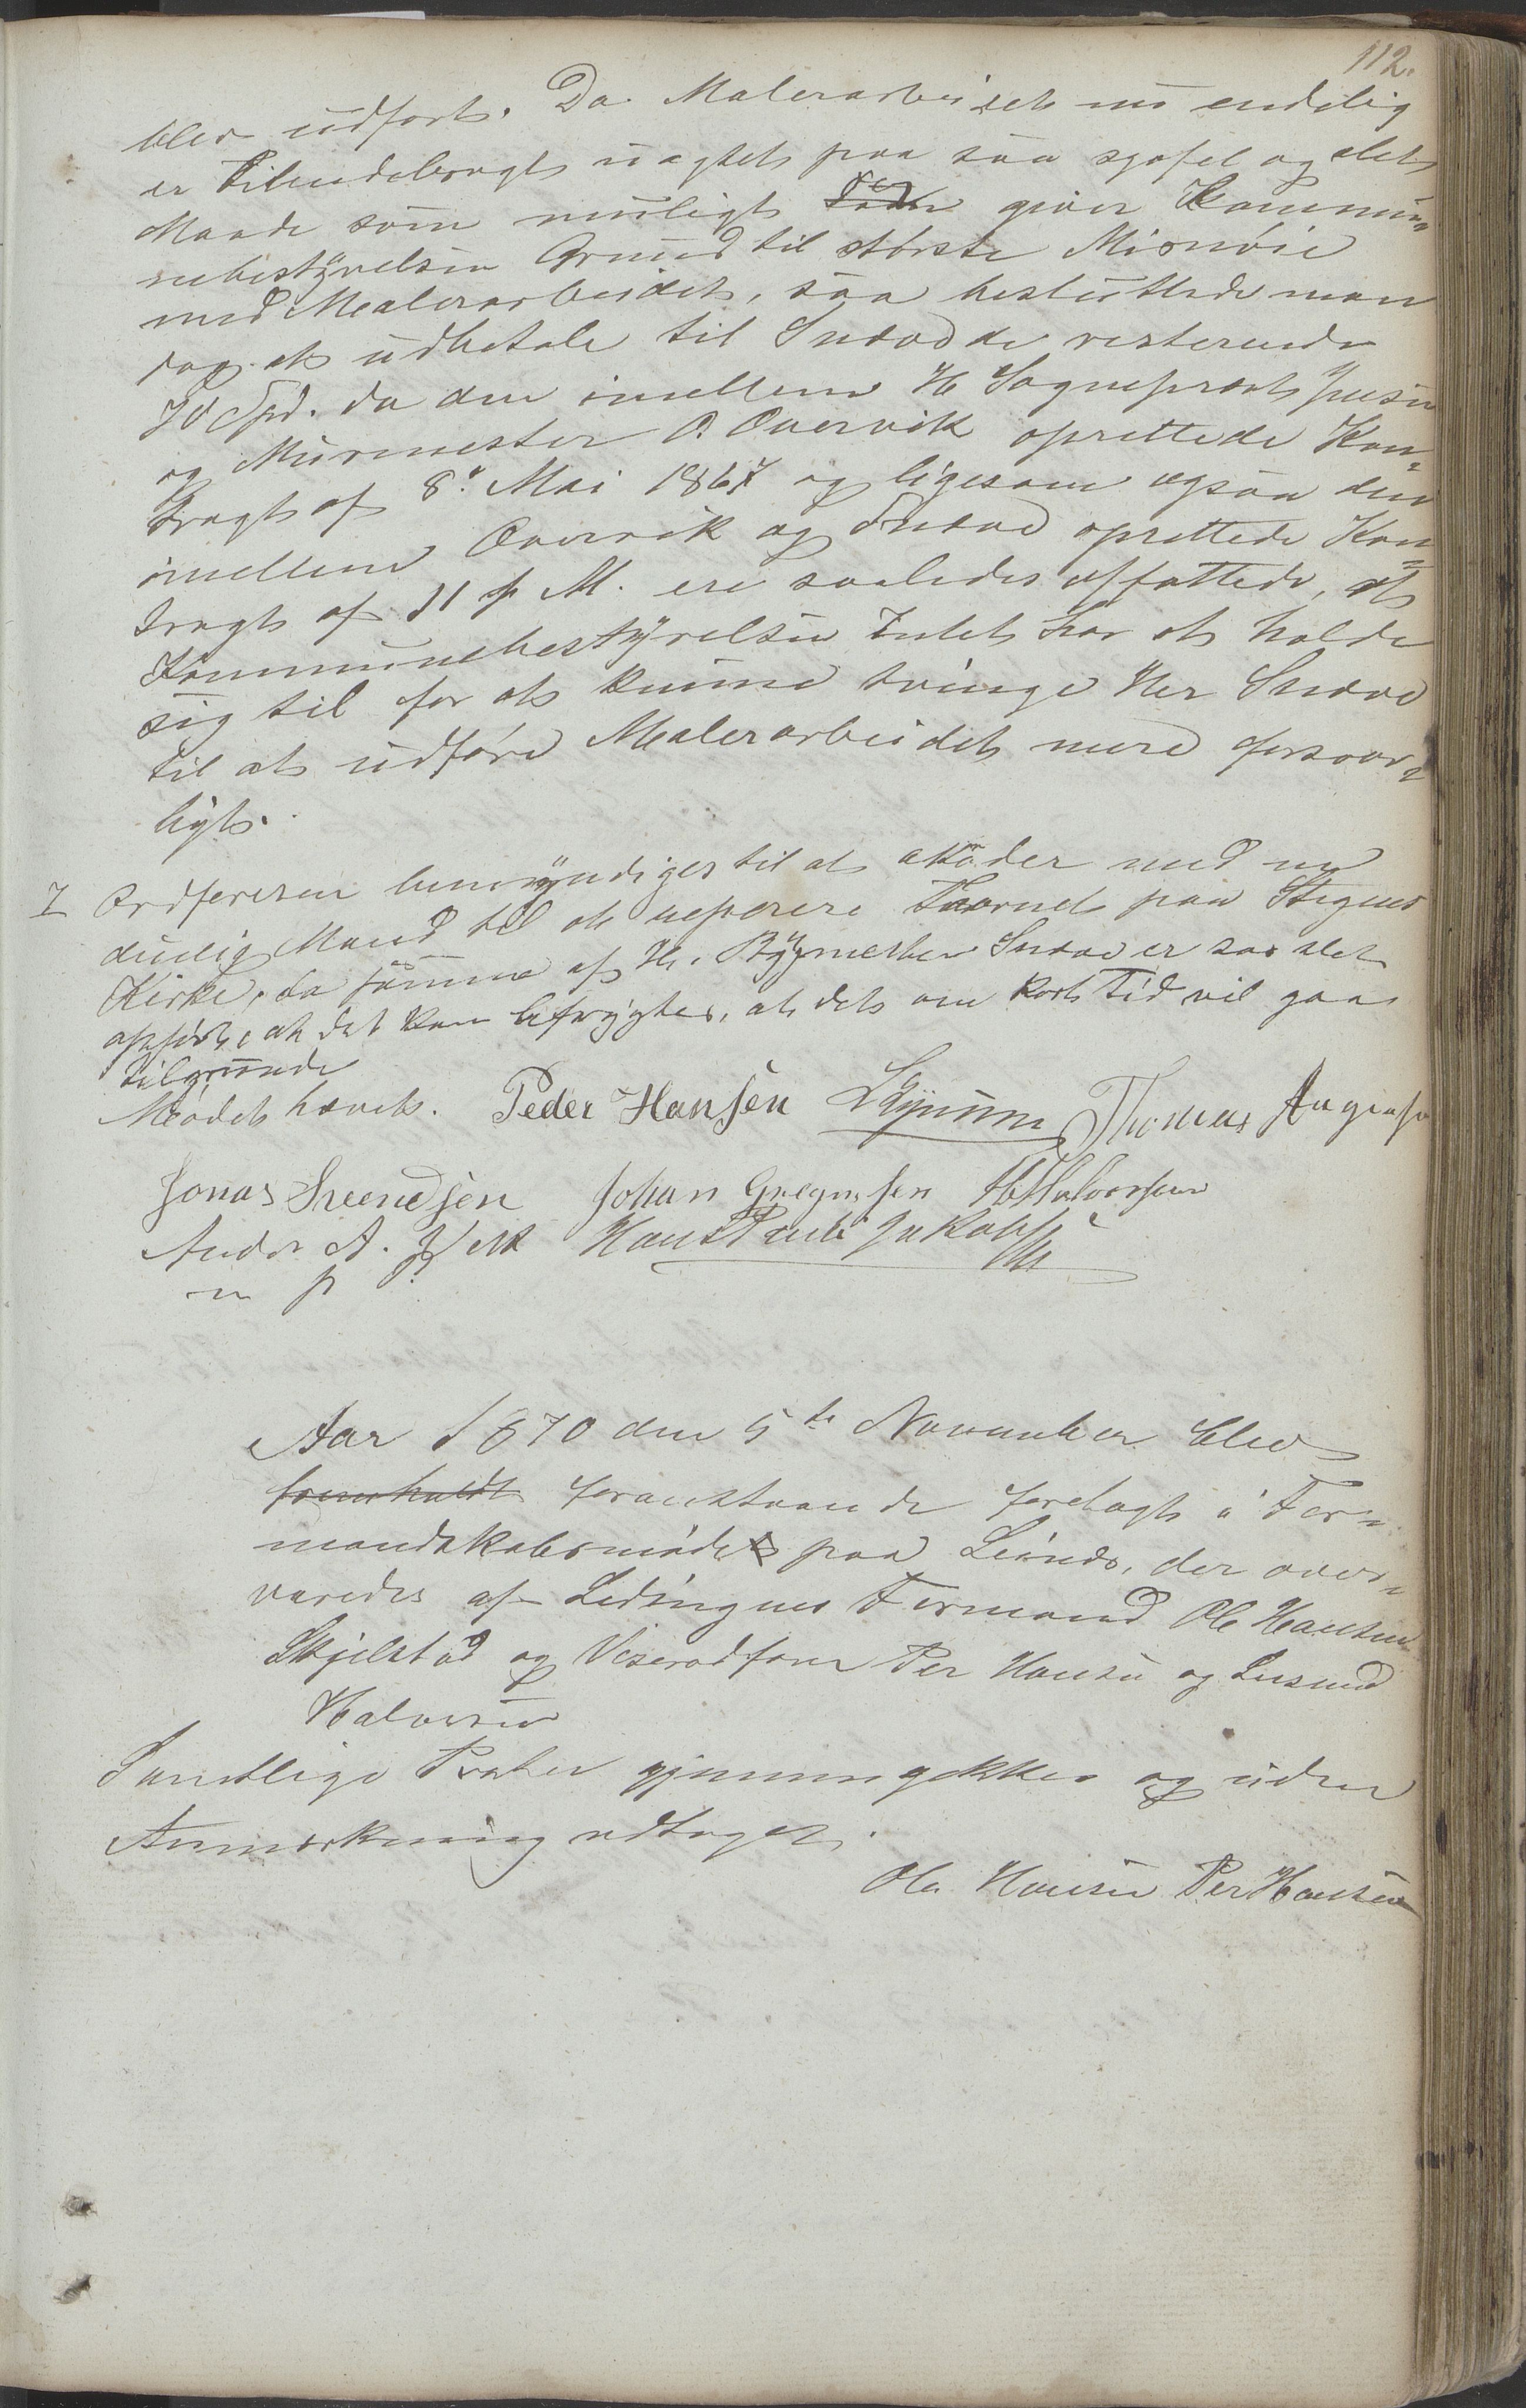 112.
blev udført. Da Malerarbeidet nu endelig
er tilendebragt uagtet paa saa sjofel og slet
Maade som muligt der giver Kommu-
nebestyrelsen Grund til største Misnøie
med Malerarbeidet, saa besluttede man
dog at udbetale til Snæve de resterende
70 Spd. da den imellem H Sogneprest Jensen
og Murmester O. Overvik oprettede Kon-
tragt af 8de Mai 1867 og ligesom ogsaa den
imellem Overvik og Snæve oprettede Kon-
tragt af 11 s. M. ere saaledes affattede, at
Kommunebestyrelsen Intet har at holde
sig til for at kunne tvinge Her Snæve
til at udføre Malerarbeidet mere forsvar-
ligt.
I Ordføreren bemyndiges til at akordere med en
duelig Mand til at reperere Taarnet paa Stegens
Kirke, da samme af Hr. Bygmester Snæve er saa slet
opført, at det kan befrygtes, at det om kort Tid vil gaa
tilgrunde
Mødet hævet. Peder Hansen Thomas
Jonas Sveendsen Johan Gregusen H Halvorsen
Andor A. Hans Jakobsen
m p
Aar 1870 den 5te November blev
fremholdt foranstaaende foretagt i For-
mandskabsmøde paa Leinds, der over-
varedes af Lødingens Formand Ole Hansen
Skjelstad og Viseordfører Per Hansen og
Halvorsen
Samtlige Poster gjennemgikkes og uden
Anmærkning vedtoges.
Ole Hansen Per Hansen